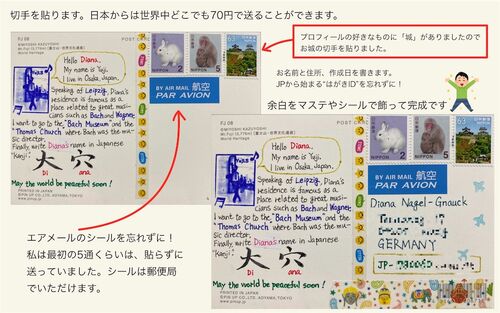 切手を貼ります。日本からは世界中どこでも70円で送ることができます。
プロフィールの好きなものに「城」がありましたので
お城の切手を貼りました。
お名前と住所、作成日を書きます。
JPから始まる“はがきID”を忘れずに！
余白をマステやシールで飾って完成です
FJ 08
POST CARD
©MIYOSHI KAZUYOSHI
World Heritage
Hello Diana.
My name is Yuji.
I live in Osaka, Japan.
Speaking of Leipzig, Diana's
residence is famous as a
Place related to great musi-
cians such as Bach and Wagner.
I want to go to the "Bach Museum" and the
"Thomas Church" where Bach was the mu-
sic director.
Finally, write Diana's name in Japanese
"Kanji".
大 穴
Di ana
May the world be peaceful soon!
PRINTED IN JAPAN
©PIN UP CO.,LTD. AOYAMA,TOKYO
www.pinup.jp
2
NIPPON
5
NIPPON
63
BY AIR MAIL 航空
PAR AVION
エアメールのシールを忘れずに！
私は最初の5通くらいは、貼らずに
送っていました。シールは郵便局
でいただけます。
FJ 08
POST CARD
©MIYOSHI KAZUYOSHI
World Heritage
Hello Diana.
My name is Yuji.
I live in Osaka, Japan.
Speaking of Leipzig, Diana's
residence is famous as a
Place related to great musi-
cians such as Bach and Wagner.
I want to go to the "Bach Museum" and the
"Thomas Church" where Bach was the mu-
sic director.
Finally, write Diana's name in Japanese
"Kanji".
大 穴
Di ana
May the world be peaceful soon!
PRINTED IN JAPAN
©PIN UP CO.,LTD. AOYAMA,TOKYO
www.pinup.jp
2
NIPPON
5
NIPPON
63
BY AIR MAIL 航空
PAR AVION
Diana Nagel-Gnauck
GERMANY